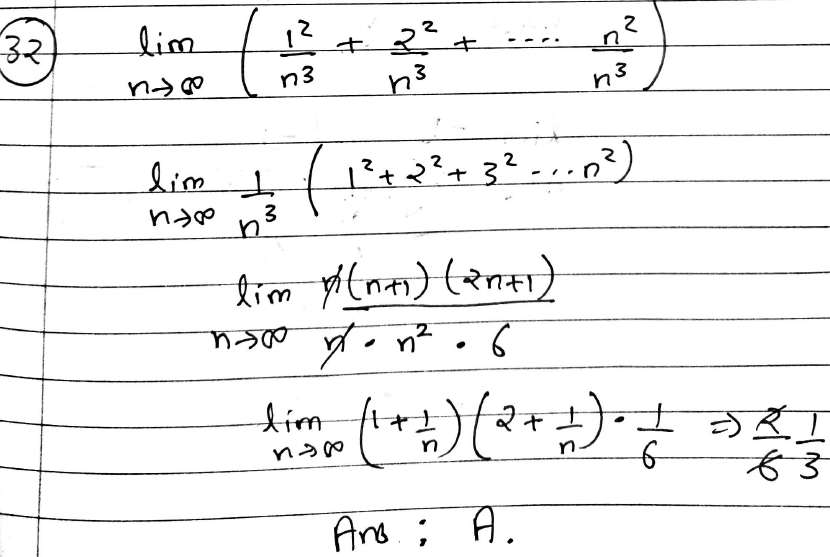 (32) lim n→∞ ( 1²/n³ + 2²/n³ + ---- n²/n³ )
lim n→∞ 1/n³ ( 1² + 2² + 3² ---- n² )
lim n→∞ n(n+1)(2n+1) / n · n² · 6
lim n→∞ (1 + 1/n)(2 + 1/n) · 1/6 ⇒ 2/6 1/3
Ans : A.